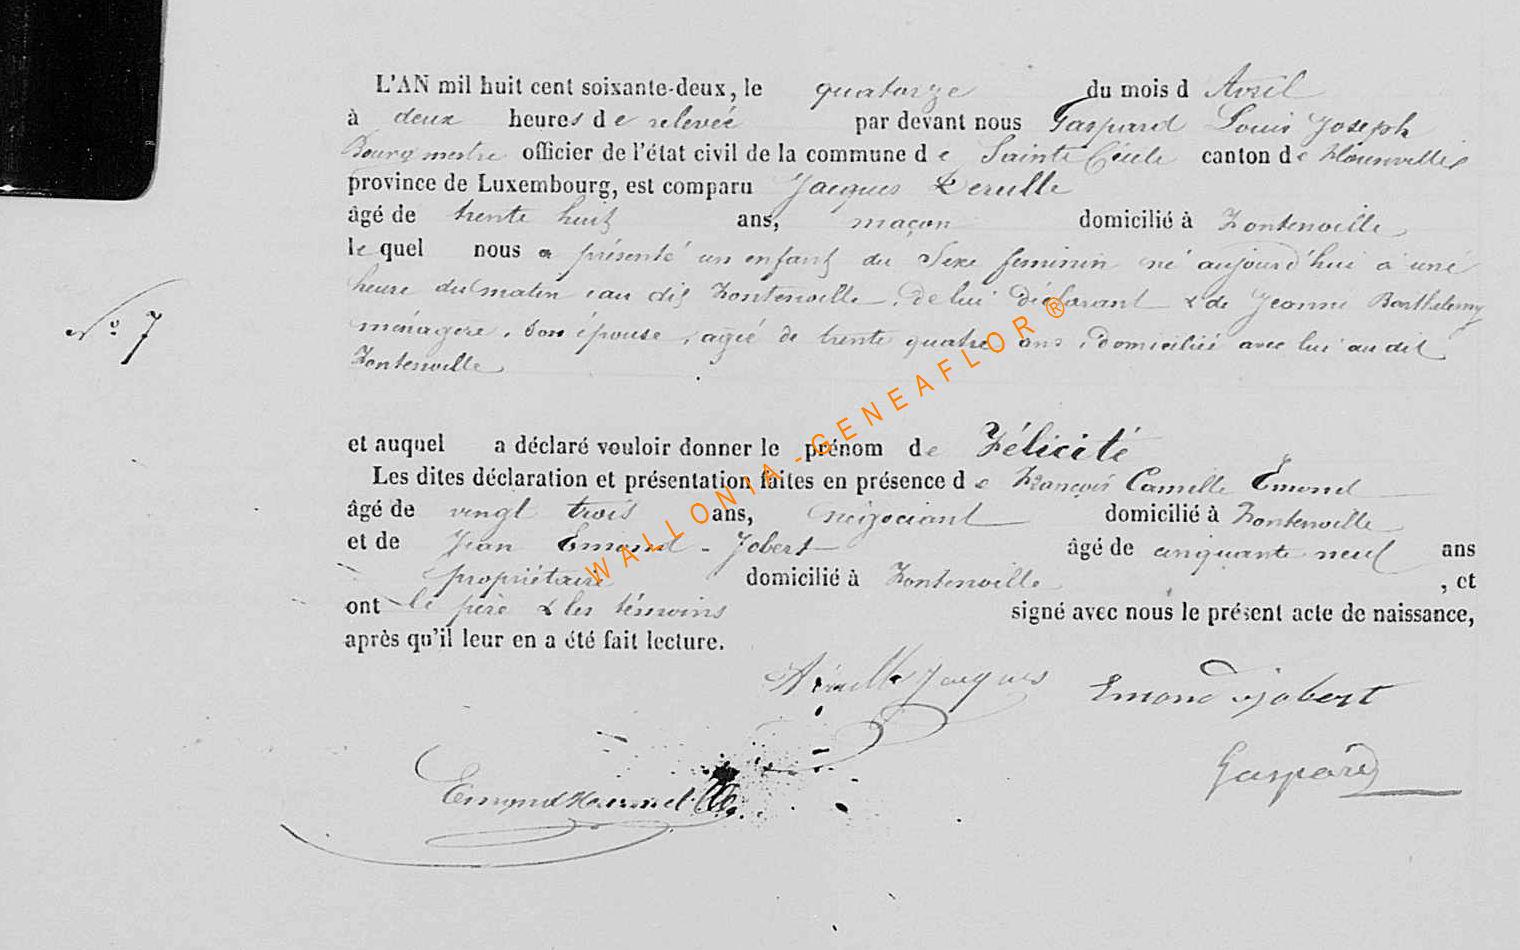 L'AN mil huit cent soixante-deux, le quatorze du mois d Avril
à deux heures de relevée par devant nous Gaspard Louis Joseph
Bourgmestre officier de l'état civil de la commune de Sainte Cécile canton de Florenville
province de Luxembourg, est comparu Jacques
âgé de trente huit ans, maçon domicilié à Fontenoille
lequel nous a présenté un enfant du Sexe feminin né aujourd'hui à une
heure du matin au dit Fontenoille, de lui déclarant & de Jeanne Barthelemy
ménagère, son épouse, agée de trente quatre ans, domiciliée avec lui au dit
Fontenoille
N° 7
et auquel a déclaré vouloir donner le prénom de Félicité
Les dites déclaration et présentation faites en présence de François Camille Emond
âgé de vingt trois ans, négociant domicilié à Fontenoille
et de Jean Emond - Jobert âgé de cinquante neuf ans
propriétaire domicilié à Fontenoille, et
ont le père & les témoins signé avec nous le présent acte de naissance,
après qu'il leur en a été fait lecture.
Jacques Emond Jobert
Gaspard
Emond
WALLONIA-GENEAFLOR®